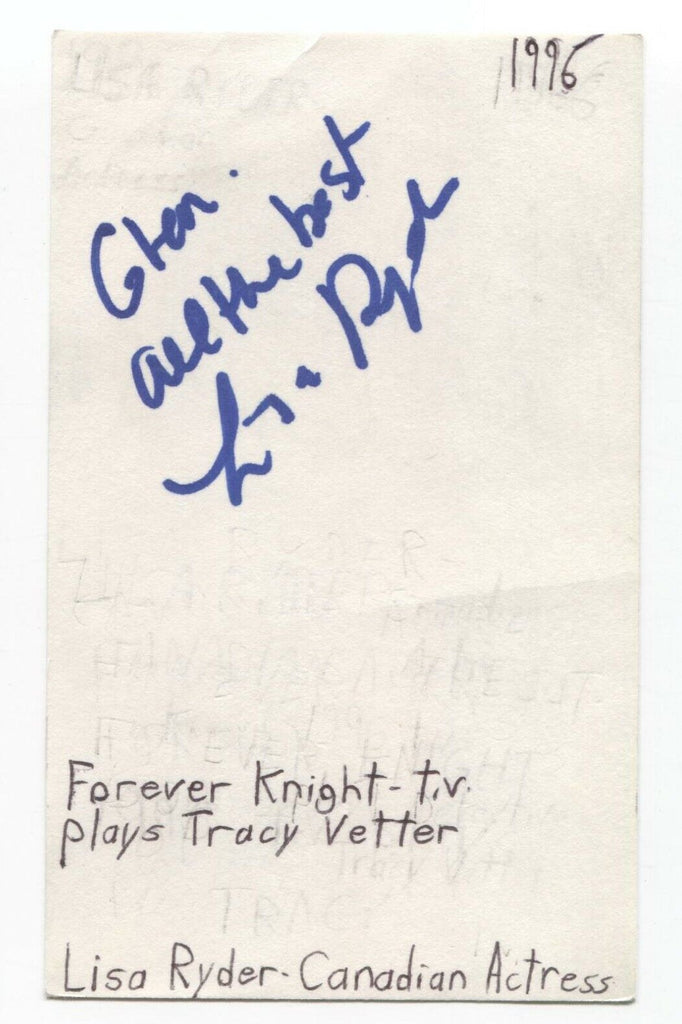 1996
Glen.
all the best
Lisa Ryder
Forever Knight - t.v.
plays Tracy Vetter
Lisa Ryder - Canadian Actress